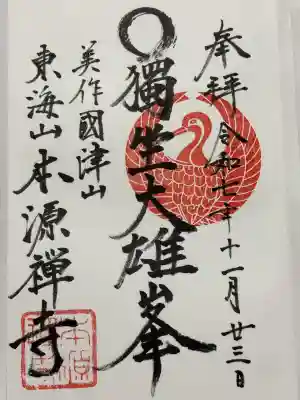 奉拝 令和七年十一月廿三日
獨坐大雄峯
美作國津山
東海山本源禅寺